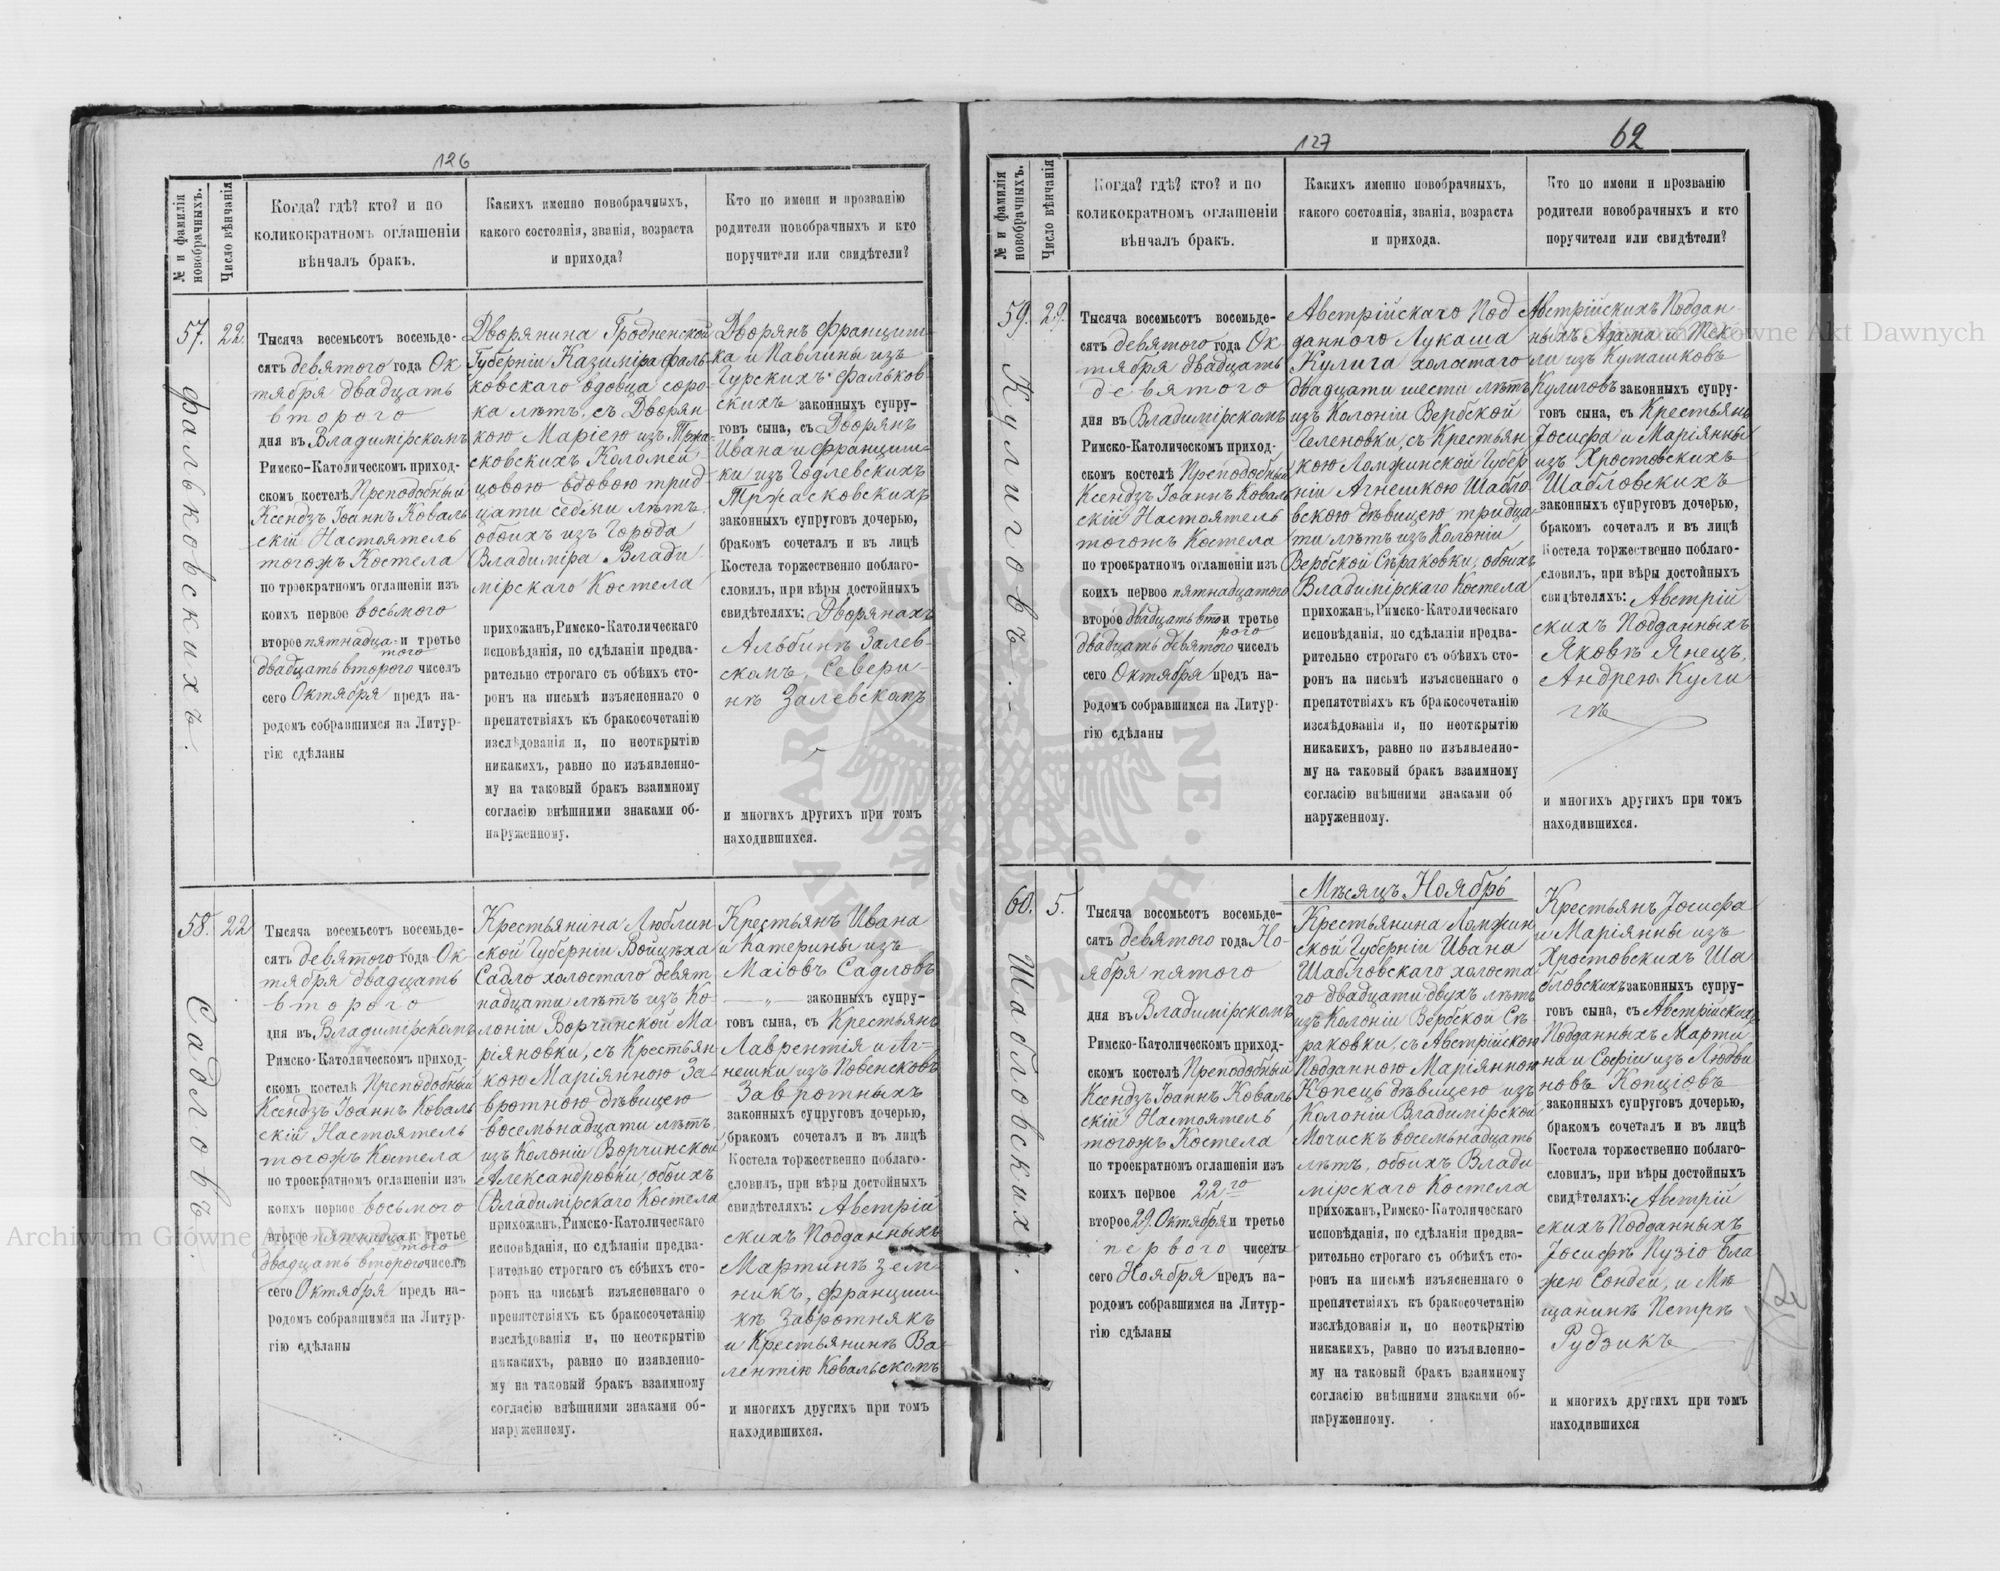 126
№ и фамилія новобрачныхъ.
Число вѣнчанія
Когда? гдѣ? кто? и по
коликократномъ оглашеніи
вѣнчалъ бракъ.
Какихъ именно новобрачныхъ,
какого состоянія, званія, возраста
и прихода?
Кто по имени и прозванію
родители новобрачныхъ и кто
поручители или свидѣтели?
57.
Фальковскихъ.
22.
Тысяча восемьсотъ восемьде-
сятъ девятого года Ок
тября двадцать
второго
дня въ Владимірскомъ
Римско-Католическомъ приход-
скомъ костелѣ Преподобный
Ксендзъ Іоаннъ Коваль
скій Настоятель
тогожъ Костела
по троекратномъ оглашеніи изъ
коихъ первое восьмого
второе пятнадца- и третье
того
двадцать второго чиселъ
сего Октября предъ на-
родомъ собравшимся на Литур-
гію сдѣланы
Дворянина Гродненской
Губерніи Казиміра Фаль-
ковскаго вдовца соро-
ка лѣтъ, съ Дворян
кою Маріею изъ Тржа-
сковскихъ Коломей
цовою вдовою трид
цати седми лѣтъ,
обоихъ изъ Города
Владиміра Влади
мірскаго Костела
прихожанъ, Римско-Католическаго
исповѣданія, по сдѣланіи предва-
рительно строгаго съ обѣихъ сто-
ронъ на письмѣ изъясненнаго о
препятствіяхъ къ бракосочетанію
изслѣдованія и, по неоткрытію
никакихъ, равно по изъявленно-
му на таковый бракъ взаимному
согласію внѣшними знаками об-
наруженному.
Дворянъ Францишъ
ка и Павлины изъ
Гурскихъ Фальков
скихъ законныхъ супру-
говъ сына, съ Дворянъ
Ивана и Францишъ
ки изъ Годлевскихъ
Тржасковскихъ
законныхъ супруговъ дочерью,
бракомъ сочеталъ и въ лицѣ
Костела торжественно поблаго-
словилъ, при вѣры достойныхъ
свидѣтеляхъ: Дворянахъ
Альбинъ Залев-
скамъ, Севери-
нъ Залевскамъ
и многихъ другихъ при томъ
находившихся.
58.
Садловъ.
22
Тысяча восемьсотъ восемьде-
сятъ девятого года Ок-
тября двадцать
второго
дня въ Владимірскомъ
Римско-Католическомъ приход-
скомъ костелѣ Преподобный
Ксендзъ Іоаннъ Коваль
скій Настоятель
тогожъ Костела
по троекратномъ оглашеніи изъ
коихъ первое восьмого
второе пятнадца и третье
того
двадцать второго чиселъ
сего Октября предъ на-
родомъ собравшимся на Литур-
гію сдѣланы
Крестьянина Люблин
ской Губерніи Войцѣха
Садло холостаго девят
надцати лѣтъ изъ Ко
лоніи Ворчинской Ма
ріяновки, съ Крестьян-
кою Маріянною За-
вротною дѣвицею
восемьнадцати лѣтъ,
изъ Колоніи Ворчинской
Александровки, обоихъ
Владимірскаго Костела
прихожанъ, Римско-Католическаго
исповѣданія, по сдѣланіи предва-
рительно строгаго съ обѣихъ сто-
ронъ на письмѣ изъясненнаго о
препятствіяхъ къ бракосочетанію
изслѣдованія и, по неоткрытію
никакихъ, равно по изявленно-
му на таковый бракъ взаимному
согласію внѣшними знаками об-
наруженному.
Крестьянъ Ивана
и Катерины изъ
Маіовъ Садловъ
—„— законныхъ супру-
говъ сына, съ Крестьянъ
Лаврентія и Аг-
нешки изъ
Завротныхъ
законныхъ супруговъ дочерью,
бракомъ сочеталъ и въ лицѣ
Костела торжественно поблаго-
словилъ, при вѣры достойныхъ
свидѣтеляхъ: Австрій
скихъ Подданныхъ
Мартинъ Зем
никъ, Францишъ
къ Завротнякъ
и Крестьянинъ Ва-
лентію Ковальскомъ
и многихъ другихъ при томъ
находившихся.
127
62
№ и фамилія новобрачныхъ.
Число вѣнчанія
Когда? гдѣ? кто? и по
коликократномъ оглашеніи
вѣнчалъ бракъ.
Какихъ именно новобрачныхъ,
какого состоянія, званія, возраста
и прихода.
Кто по имени и прозванію
родители новобрачныхъ и кто
поручители или свидѣтели?
59.
Кулиговъ.
29.
Тысяча восемьсотъ восемьде-
сятъ девятого года Ок
тября двадцать
девятого
дня въ Владимірскомъ
Римско-Католическомъ приход-
скомъ костелѣ Преподобный
Ксендзъ Іоаннъ Коваль
скій Настоятель
тогожъ Костела
по троекратномъ оглашеніи изъ
коихъ первое пятнадцатого
второе двадцать вто и третье
рого
двадцать девятого чиселъ
сего Октября предъ на-
родомъ собравшимся на Литур-
гію сдѣланы
Австрійскаго Под
данного Лукаша
Кулига холостаго
двадцати шести лѣтъ
изъ Колоніи Вербской
Геленовки, съ Крестьян
кою Ломжинской Губер
ніи Агнешкою Шабло-
вскою дѣвицею тридца-
ти лѣтъ изъ Колоніи
Вербской Сѣраковки, обоихъ
Владимірскаго Костела
прихожанъ, Римско-Католическаго
исповѣданія, по сдѣланіи предва-
рительно строгаго съ обѣихъ сто-
ронъ на письмѣ изъясненнаго о
препятствіяхъ къ бракосочетанію
изслѣдованія и, по неоткрытію
никакихъ, равно по изъявленно-
му на таковый бракъ взаимному
согласію внѣшними знаками об
наруженному.
Австрійскихъ Поддан-
ныхъ Адама и Тек-
ли изъ Кумашковъ
Кулиговъ законныхъ супру-
говъ сына, съ Крестьянъ
Іосифа и Маріянны
изъ Хростовскихъ
Шабловскихъ
законныхъ супруговъ дочерью,
бракомъ сочеталъ и въ лицѣ
Костела торжественно поблаго-
словилъ, при вѣры достойныхъ
свидѣтеляхъ: Австрій
скихъ Подданныхъ
Яковъ Янецъ,
Андрею Кули
гъ
и многихъ другихъ при томъ
находившихся.
60.
Шабловскихъ.
5.
Тысяча восемьсотъ восемьде-
сятъ девятого года Но-
ября пятого
дня въ Владимірскомъ
Римско-Католическомъ приход-
скомъ костелѣ Преподобный
Ксендзъ Іоаннъ Коваль
скій Настоятель
тогожъ Костела
по троекратномъ оглашеніи изъ
коихъ первое 22го
второе 29. Октября и третье
первого чиселъ
сего Ноября предъ на-
родомъ собравшимся на Литур-
гію сдѣланы
Мѣсяцъ Ноябрь
Крестьянина Ломжин
ской Губерніи Ивана
Шабловскаго холоста-
го двадцати двухъ лѣтъ
изъ Колоніи Вербской Сѣ
раковки, съ Австрійскою
Подданною Маріянною
Копець дѣвицею изъ
Колоніи Владимірской
Мочискъ восемьнадцать
лѣтъ, обоихъ Влади-
мірскаго Костела
прихожанъ, Римско-Католическаго
исповѣданія, по сдѣланіи предва-
рительно строгаго съ обѣихъ сто-
ронъ на письмѣ изъясненнаго о
препятствіяхъ къ бракосочетанію
изслѣдованія и, по неоткрытію
никакихъ, равно по изъявленно-
му на таковый бракъ взаимному
согласію внѣшними знаками об-
наруженному.
Крестьянъ Іосифа
и Маріянны изъ
Хростовскихъ Ша
бловскихъ законныхъ супру-
говъ сына, съ Австрійскихъ
Подданныхъ Марти
на и Софіи изъ Людви
новъ Копціовъ
законныхъ супруговъ дочерью,
бракомъ сочеталъ и въ лицѣ
Костела торжественно поблаго-
словилъ, при вѣры достойныхъ
свидѣтеляхъ: Австрій
скихъ Подданныхъ
Іосифъ Пузіо Бла
жею Сондей, и Мѣ
щанинъ Петръ
Рудзикъ
и многихъ другихъ при томъ
находившихся
Archiwum Główne Akt Dawnych
Archiwum Główne Akt Dawnych